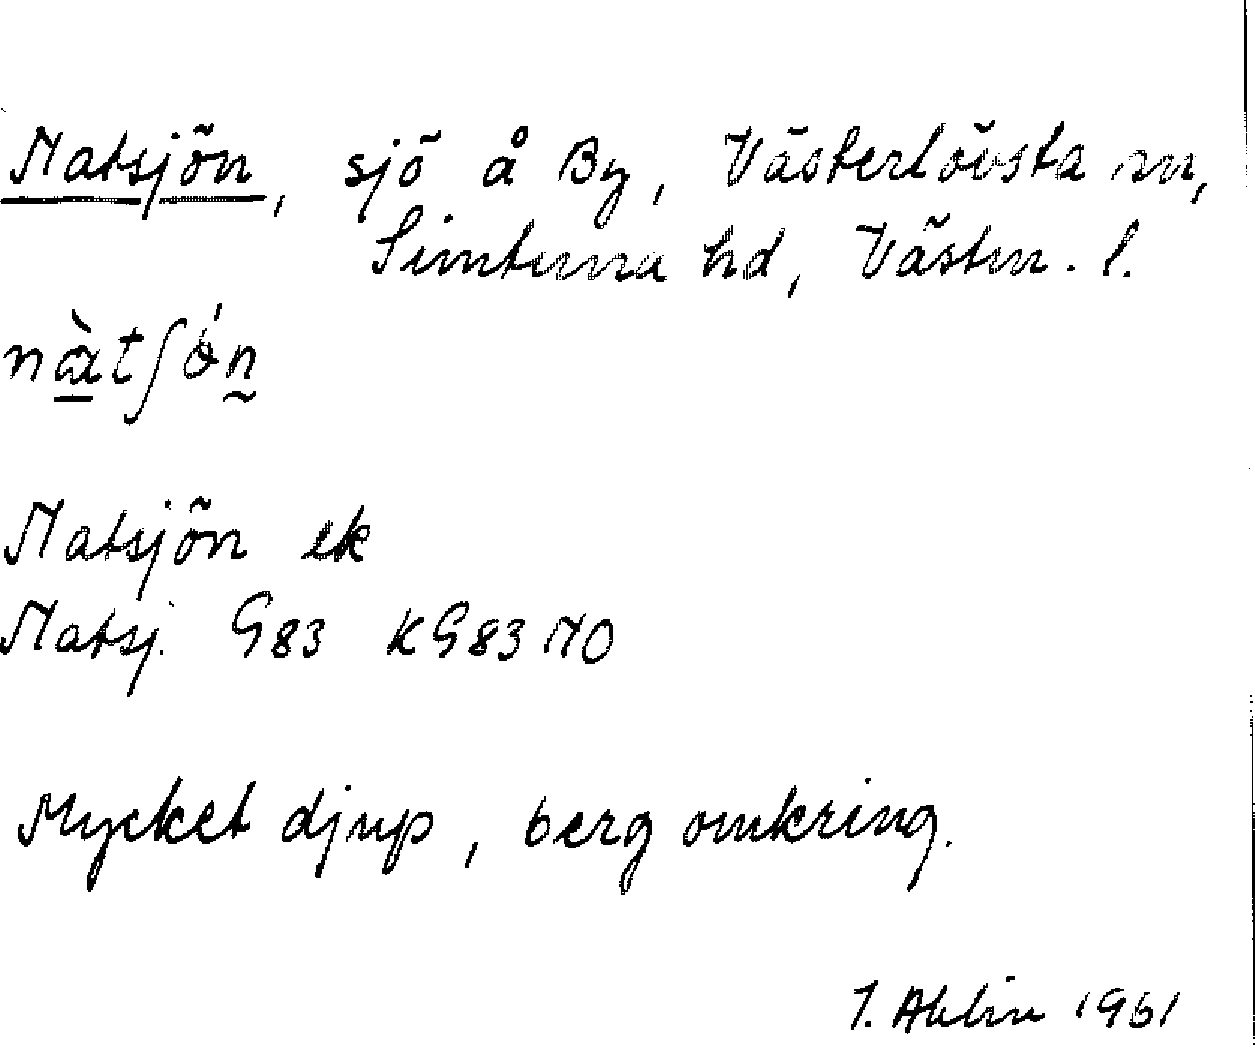 Natsjön, sjö å By, Västerlövsta sn,
Simtuna hd, Västm. l.
nàtʃǿn
Natsjön ek
Natsj. G83 KG83 NO
Mycket djup, berg omkring.
J. Ahlin 1961